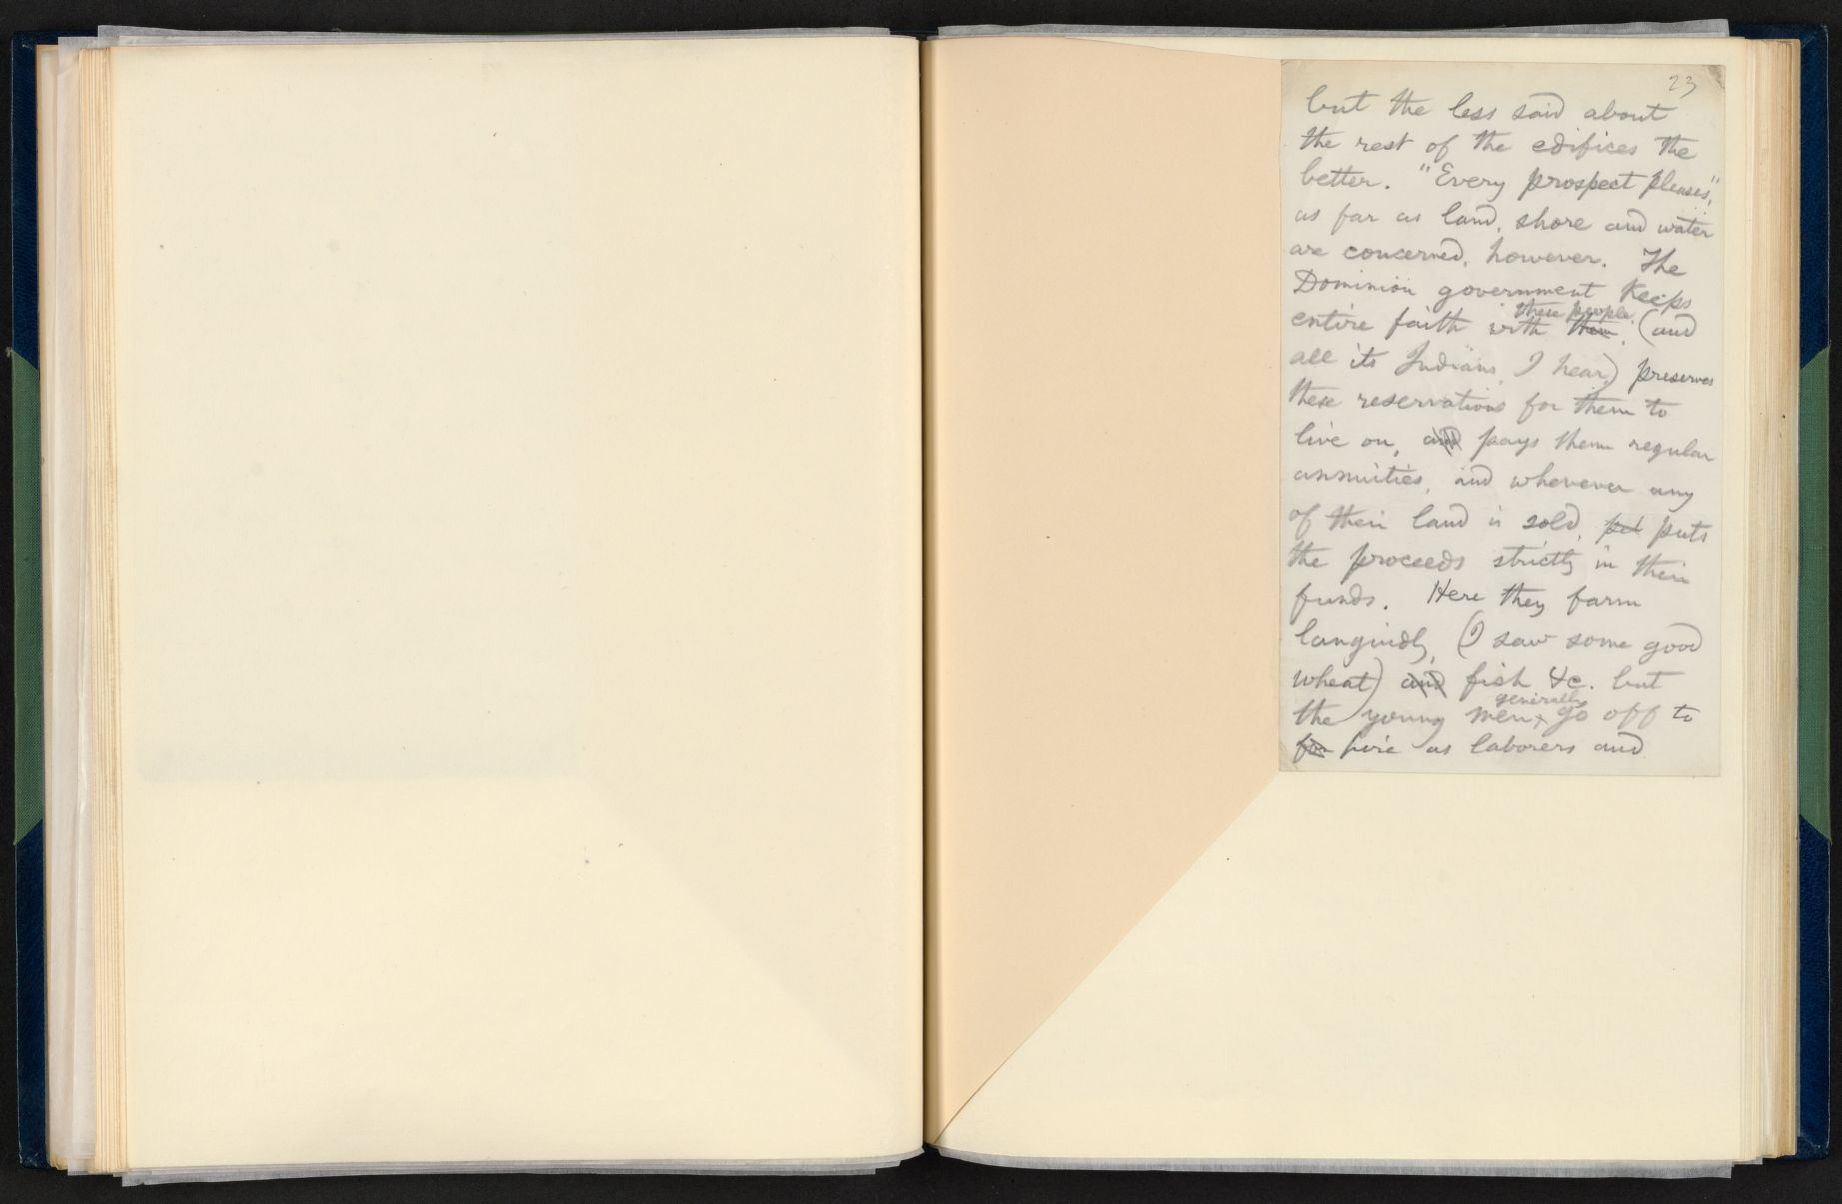 23
but the less said about
the rest of the edifices the
better. "Every prospect pleases,"
as far as land, shore and water
are concerned, however. The
Dominion government keeps
these people
entire faith with them, (and
all its Indians, I hear,) preserves
these reservations for them to
live on, and pays them regular
annuities, and whenever any
of their land is sold, put puts
the proceeds strictly in their
funds. Here they farm
languidly, (I saw some good
wheat) and fish &c. but
generally
the young men go off to
for hire as laborers and